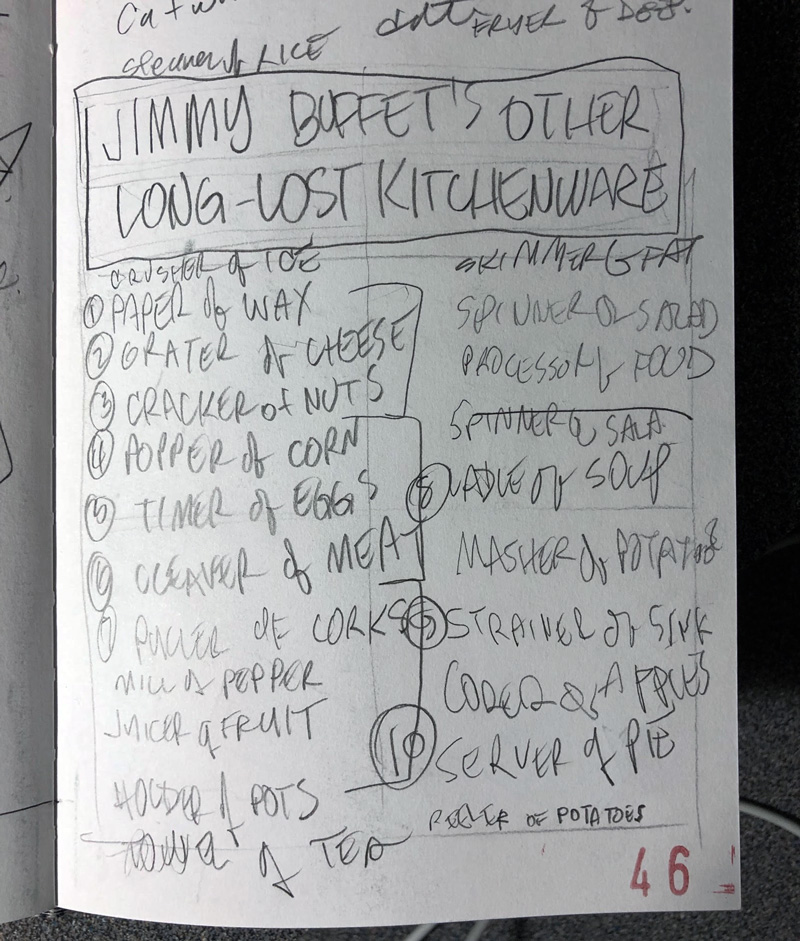 Cu
FRYER of
Steamer of RICE
JIMMY BUFFET'S OTHER
LONG-LOST KITCHENWARE
CRUSHER of ICE
① PAPER of WAX
② GRATER of CHEESE
③ CRACKER of NUTS
④ POPPER of CORN
⑤ TIMER of EGGS
⑥ CLEAVER of MEAT
⑦ PULLER OF CORKS
MILL of PEPPER
JUICER of FRUIT
HOLDER of POTS
TOWEL of TEA
SKIMMER of FAT
SPINNER of SALAD
PROCESSOR of FOOD
SPINNER of SALA
⑧ LADLE of SOUP
MASHER of POTATOES
⑨ STRAINER of SINK
CORER of APPLES
⑩ SERVER of PIE
PEELER OF POTATOES
46